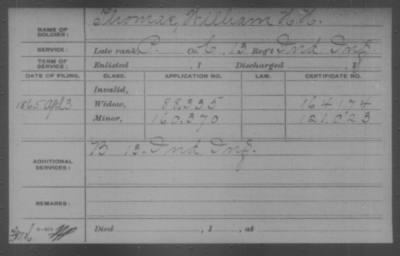 NAME OF SOLDIER: Thomas, William H. H.
SERVICE: Late rank P. Co. C, 13 Reg't Ind Inf
TERM OF SERVICE: Enlisted , 1 Discharged , 1
DATE OF FILING. CLASS. APPLICATION NO. LAW. CERTIFICATE NO.
Invalid,
1865 Apl 3 Widow, 88.335 164174
Minor, 160.370 121.023
ADDITIONAL SERVICES: B 13. Ind Inf.
REMARKS:
Died , 1 , at